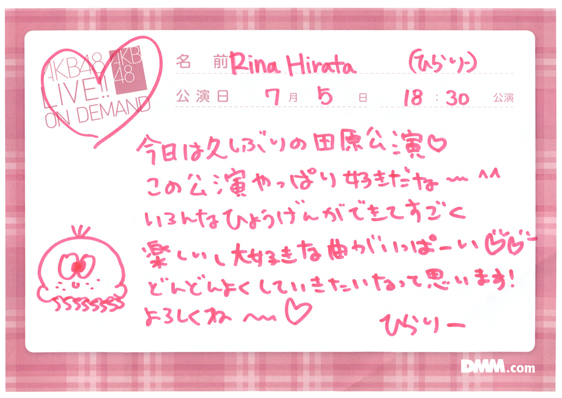 AKB48
LIVE!!
ON DEMAND
AKB
48
名 前 Rina Hirata (ひらりー)
公演日 7月 5日 18:30 公演
今日は久しぶりの田原公演♡
この公演やっぱり好きだな〜^^
いろんなひょうげんができてすごく
楽しいし大好きな曲がいっぱーい♡♡
どんどんよくしていきたいなって思います!
よろしくね〜♡
ひらりー
DMM.com